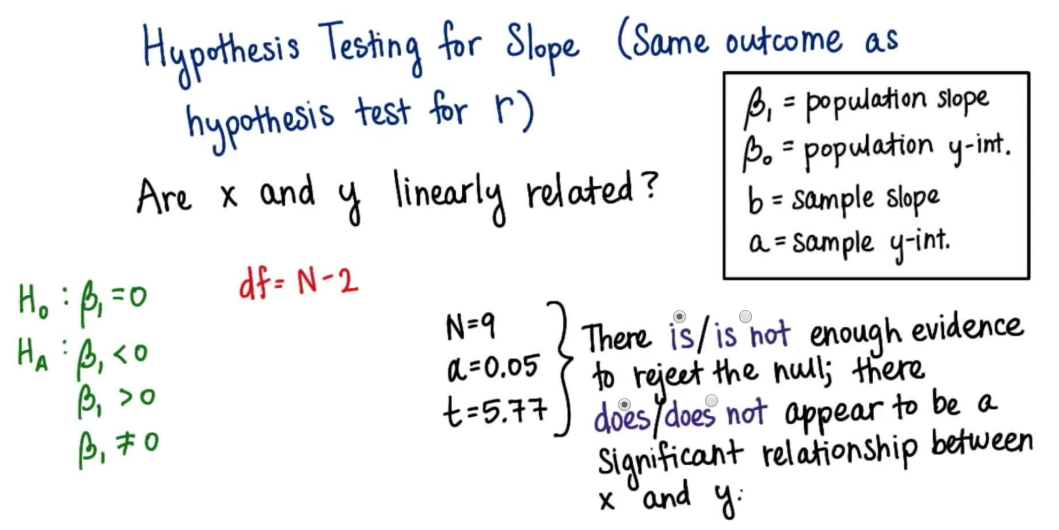 Hypothesis Testing for Slope (Same outcome as
hypothesis test for r)
β₁ = population slope
β₀ = population y-int.
b = sample slope
a = sample y-int.
Are x and y linearly related?
H₀ : β₁ = 0
H_A : β₁ < 0
β₁ > 0
β₁ ≠ 0
df = N - 2
N = 9
α = 0.05
t = 5.77
There is/is not enough evidence
to reject the null; there
does/does not appear to be a
significant relationship between
x and y.